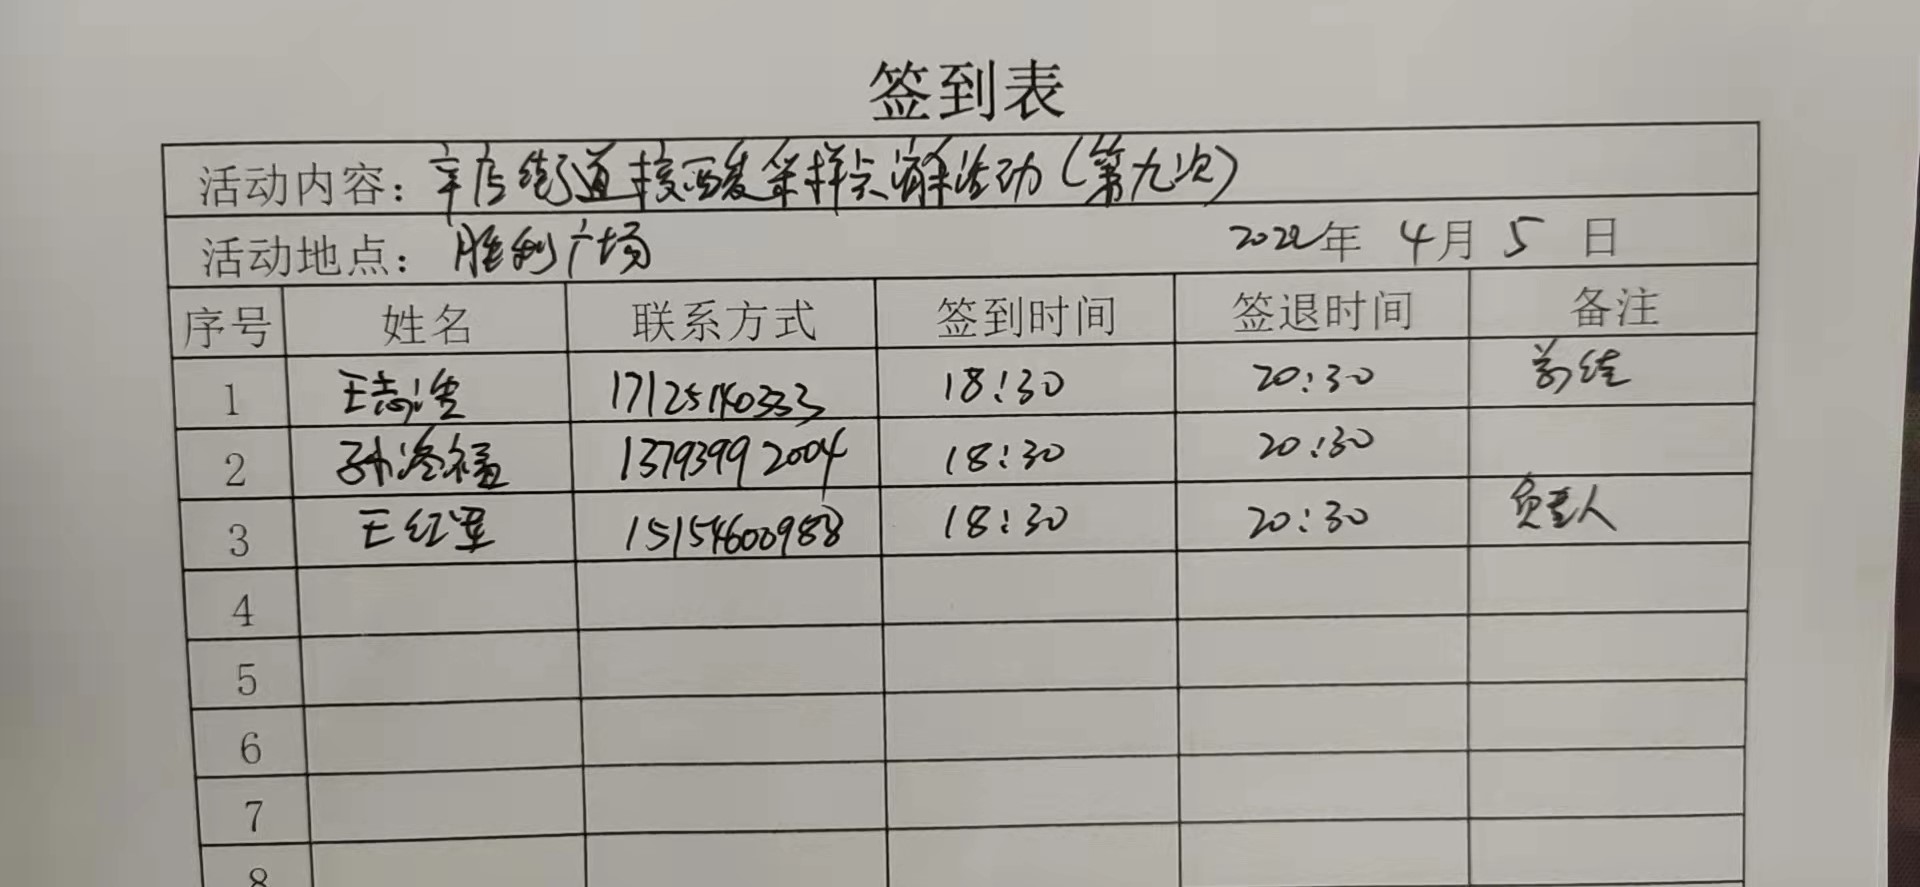 签到表
活动内容：辛店街道核酸采样点消杀活动（第九次）
活动地点：胜利广场 2022年 4月 5 日
序号 姓名 联系方式 签到时间 签退时间 备注
1 王志 17125140333 18:30 20:30
2 孙 福 13793992004 18:30 20:30
3 王红军 15154600988 18:30 20:30 负责人
4
5
6
7
8